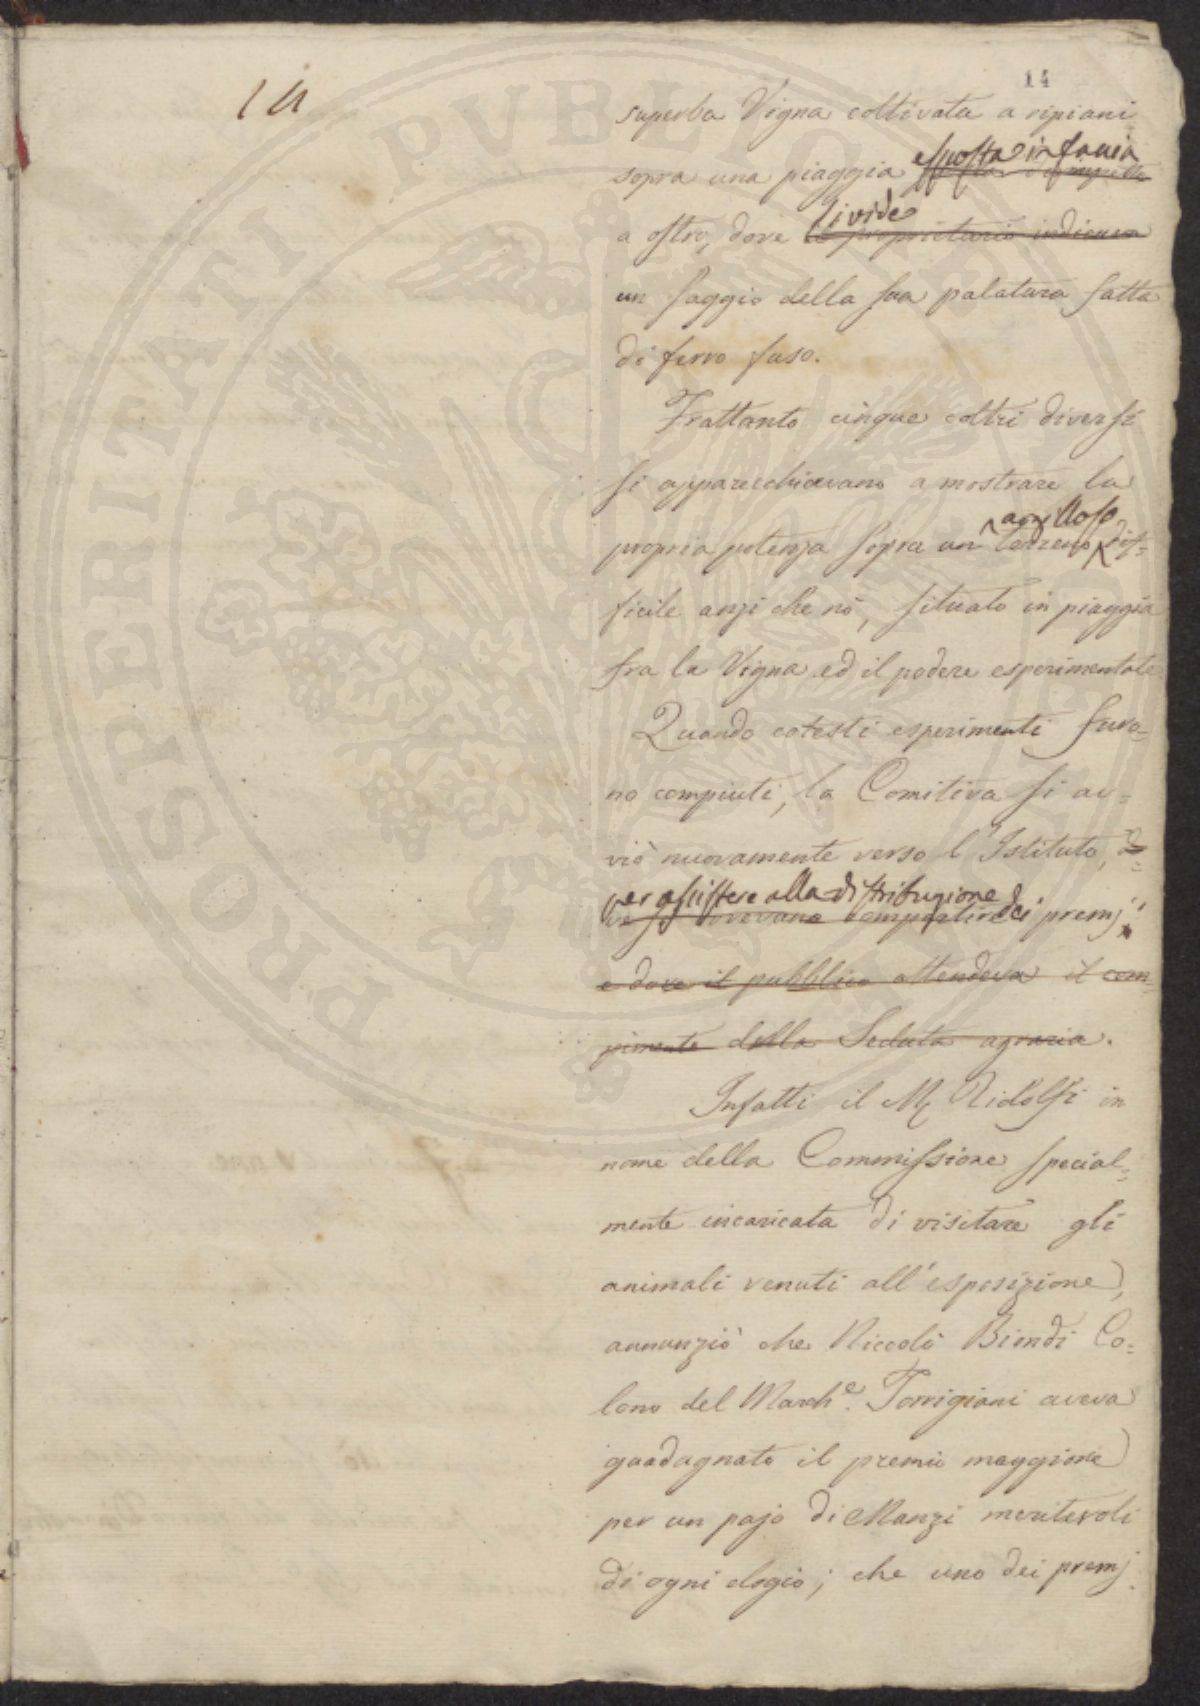 14
14
superba Vigna coltivata a ripiani
sopra una piaggia esposta in faccia
a ostro, dove si vide il proprietario indicava
un saggio della sua palatura fatta
di ferro fuso.
Frattanto cinque coltri diversi
si apparecchiavano a mostrare la
propria potenza sopra un terreno argilloso dif=
ficile anzi che nò, situato in piaggia
fra la Vigna ed il podere esperimentale
Quando cotesti esperimenti furo=
no compiuti, la Comitiva si av=
viò nuovamente verso l'Istituto,
per assistere alla distribuzione dei premj.
e dove il pubblico attendeva il com=
pimento della Seduta agraria.
Infatti il M. Ridolfi in
nome della Commissione special=
mente incaricata di visitare gli
animali venuti all'esposizione,
annunziò che Niccolò Biondi Co=
lono del March.e Torrigiani aveva
guadagnato il premio maggiore
per un pajo di Manzi meritevoli
di ogni elogio; che uno dei premj
PROSPERITATI PVBLICAE